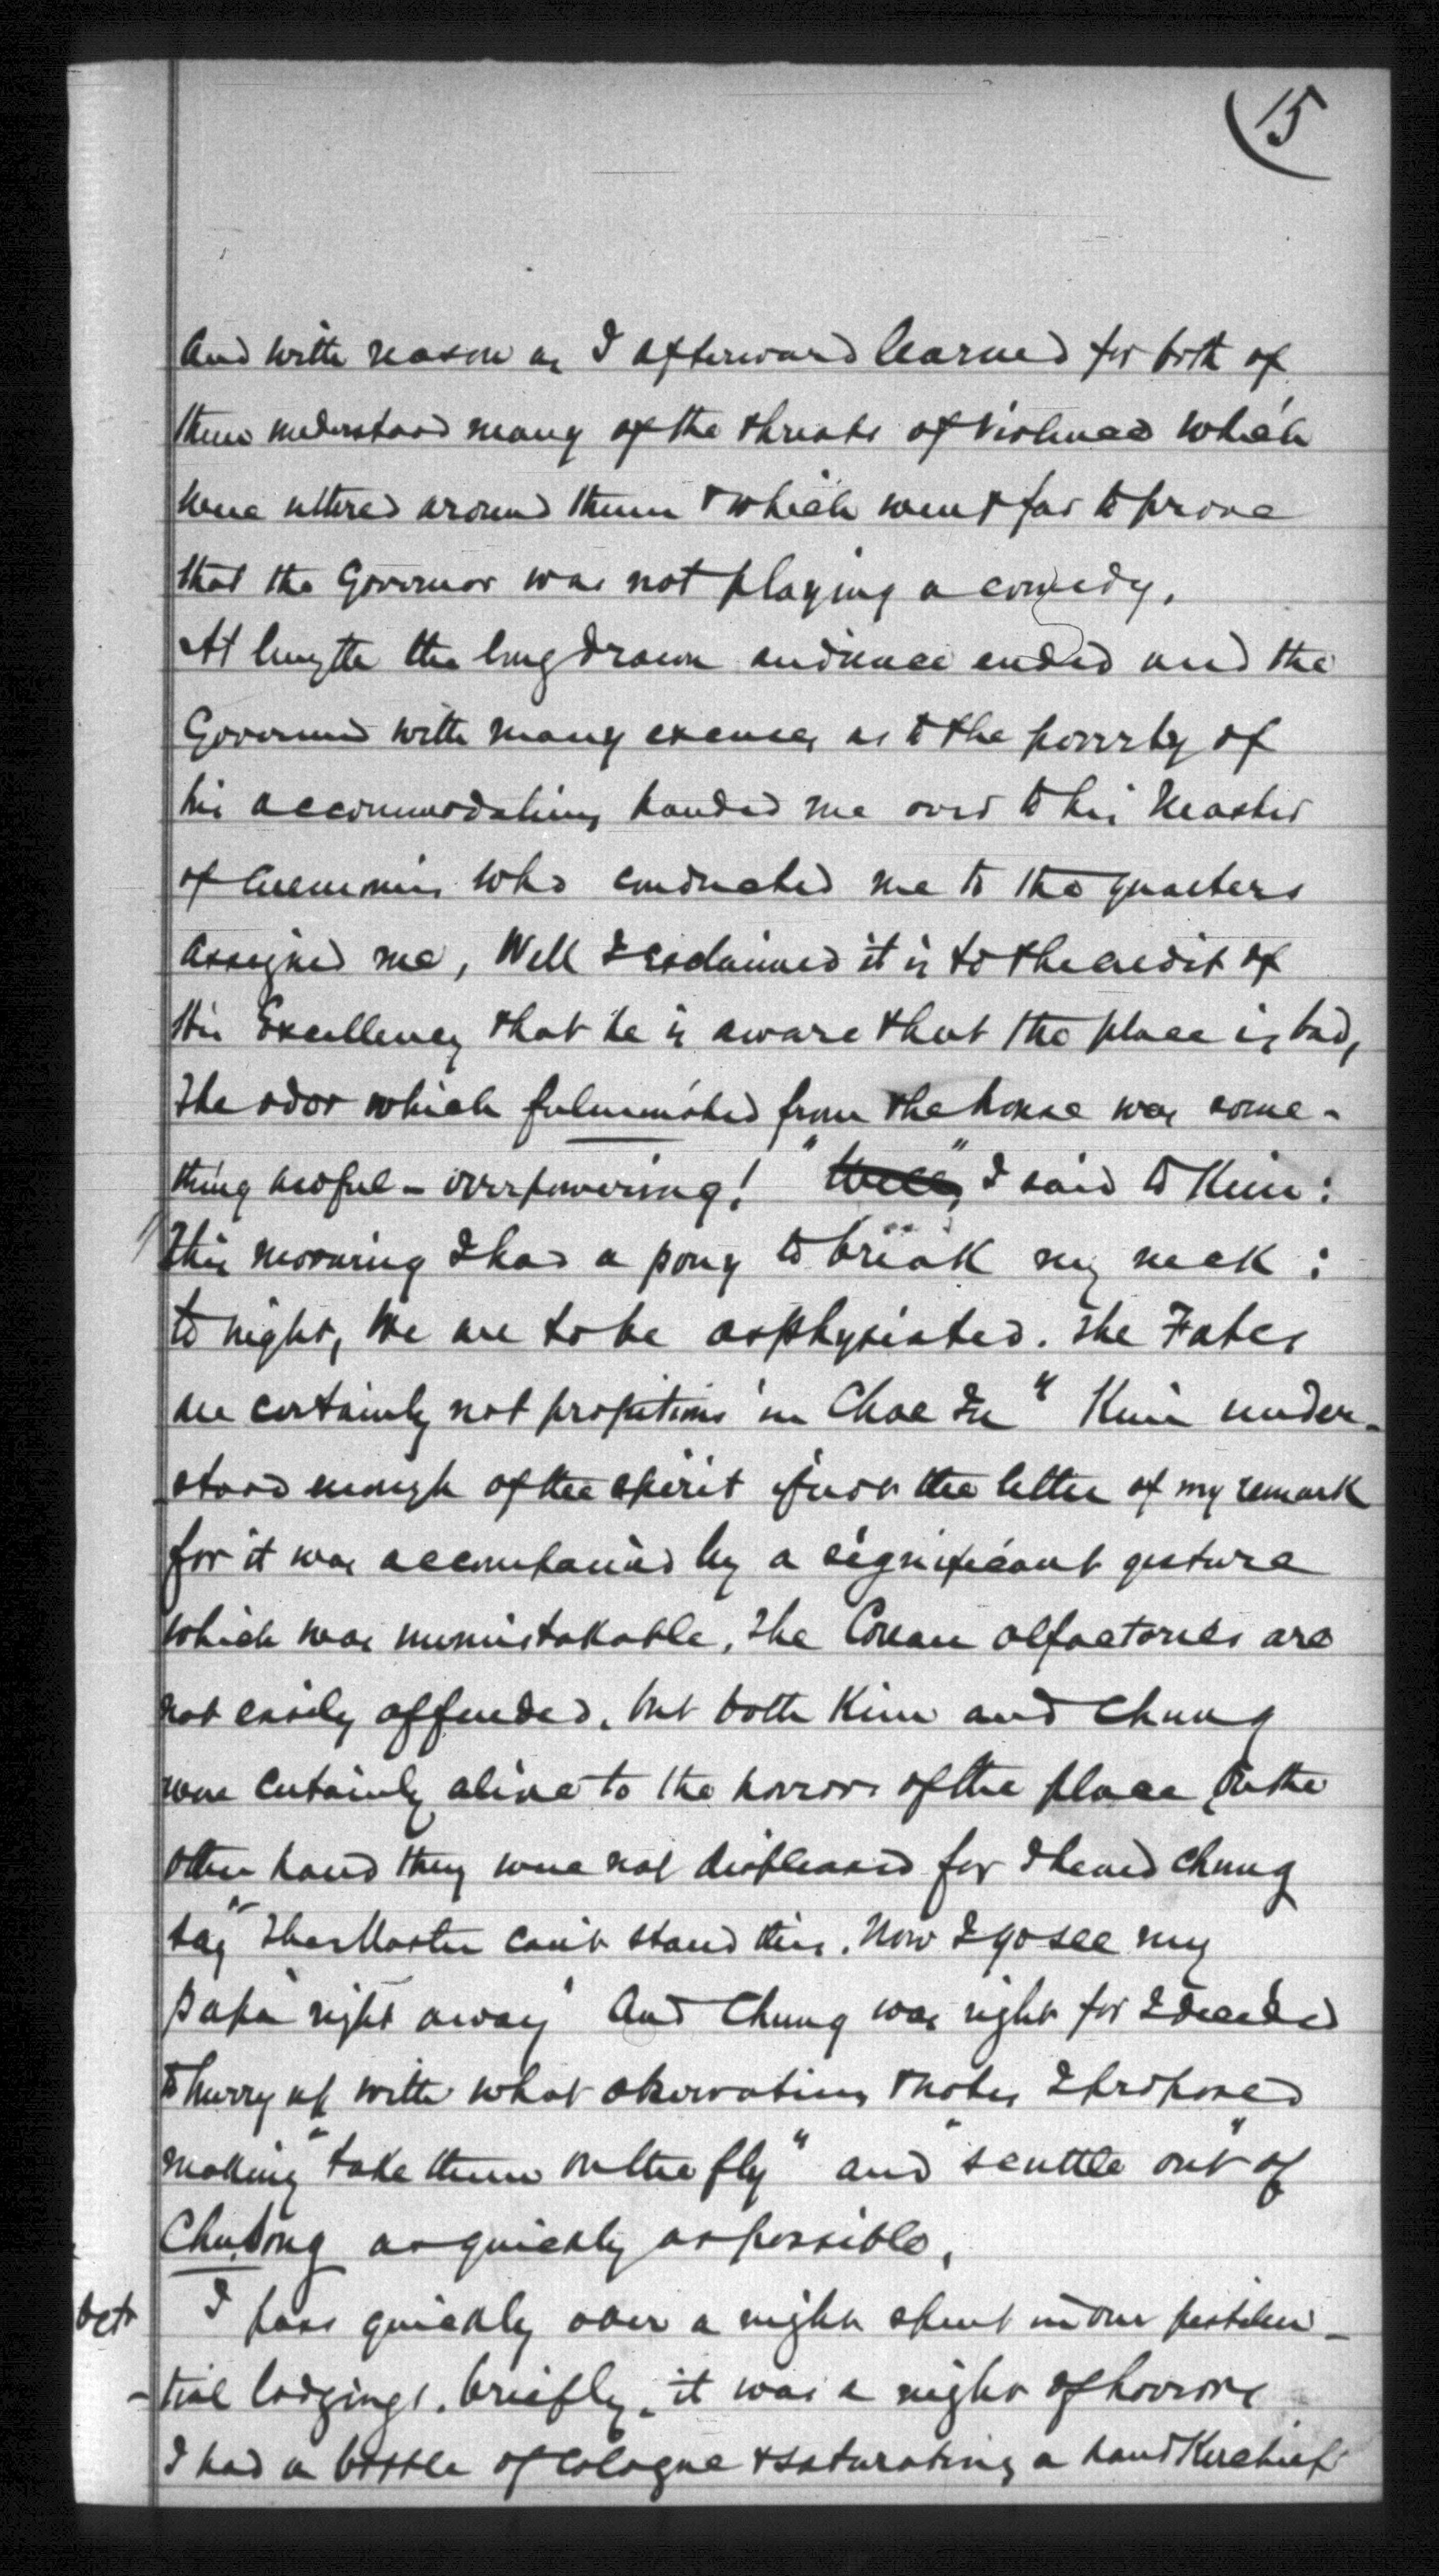 15
and with reason as I afterward learned for both of
them understood many of the threats of violence which
were uttered around them & which went far to prove
that the Governor was not playing a comedy.
At length the long drawn audience ended and the
Governor with many excuses as to the poverty of
his accommodations handed me over to his Master
of Ceremonies who conducted me to the quarters
assigned me, Well I exclaimed it is to the credit of
His Excellency that he is aware that the place is bad,
The odor which fulminated from the house was some-
thing awful - overpowering! "Well," I said to Kim:
This morning I had a pony to break my neck:
to night, we are to be asphyxiated. The Fates
are certainly not propitious in Chae Ju" Kim under-
stood enough of the spirit if not the letter of my remark
for it was accompanied by a significant gesture
which was unmistakable, The Corean olfactories are
not easily offended, but both Kim and Chung
were certainly alive to the horrors of the place, On the
other hand they were not displeased for I heard Chung
say "The Master can't stand this. Now I go see my
Papa right away" And Chung was right for I decided
to hurry up with what observations & notes I proposed
making "take them on the fly" and "scuttle out" of
Chulsong as quickly as possible.
I pass quickly over a night spent in our pestilen-
-tial lodgings. briefly, it was a night of horrors
I had a bottle of Cologne & saturating a handkerchief